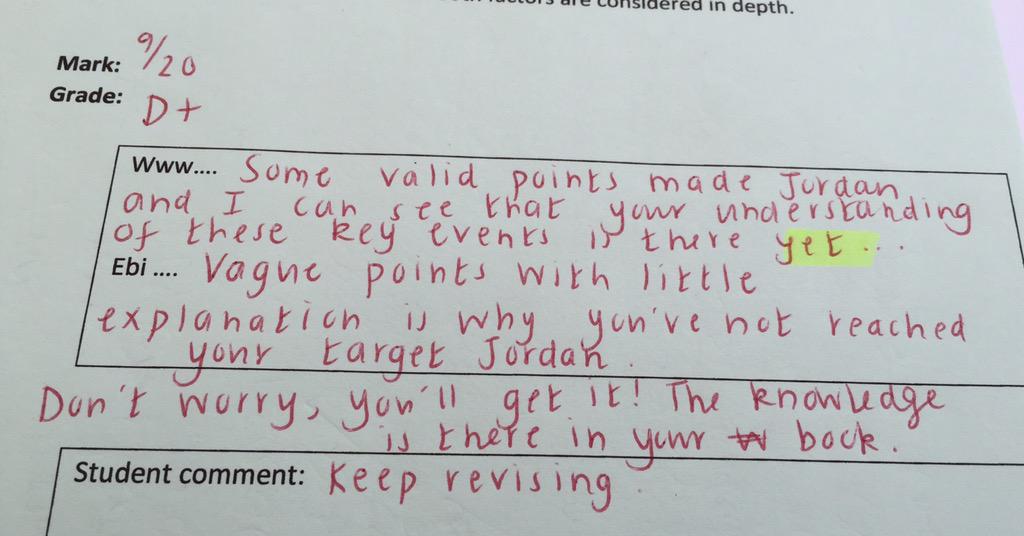 factors are considered in depth.
Mark: 9/20
Grade: D+
Www.... Some valid points made Jordan
and I can see that your understanding
of these key events is there yet...
Ebi .... Vague points with little
explanation is why you've not reached
your target Jordan.
Don't worry, you'll get it! The knowledge
is there in your book.
Student comment: Keep revising.